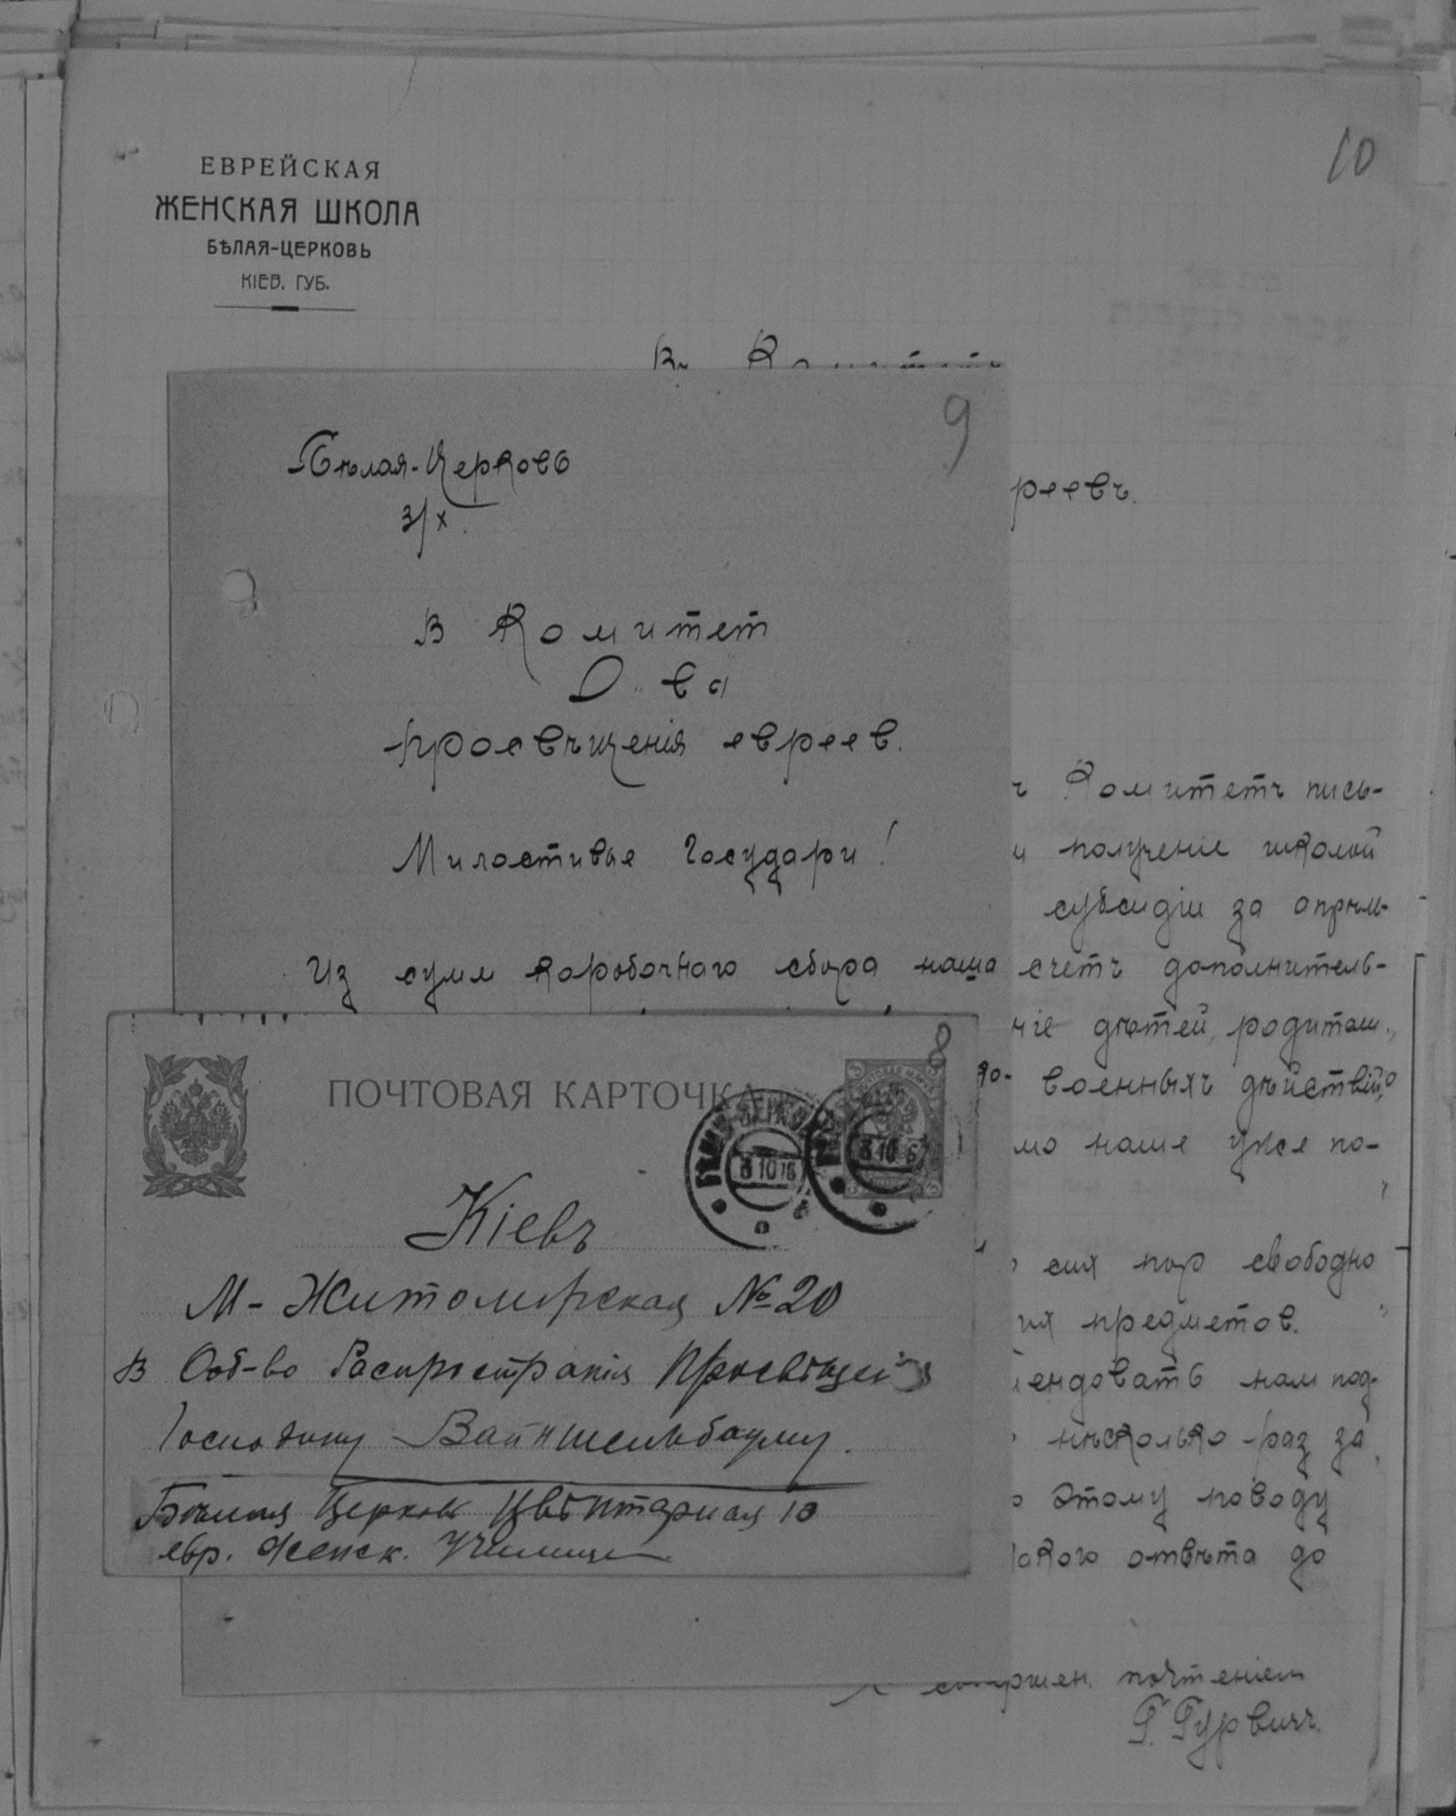 10
ЕВРЕЙСКАЯ
ЖЕНСКАЯ ШКОЛА
БѢЛАЯ-ЦЕРКОВЬ
КІЕВ. ГУБ.
Въ Комитетъ
реевъ.
ъ Комитетъ пись-
и полученіе школой
субсидіи за апрѣль-
счетъ дополнитель-
ніе дѣтей,
военныхъ дѣйствій,
мо наше уже по-
сих пор свободно
их предметов.
ендовать нам под-
нѣсколько раз за
о этому поводу
акого отвѣта до
почтеніем
Г. Гурвичъ.
9
Бѣлая-Церковь
3/X.
В Комитет
О-ва
просвѣщенія евреев.
Милостивые Государи!
Из сумм коробочнаго сбора наша
8
ПОЧТОВАЯ КАРТОЧКА
БѢЛАЯ ЦЕРКОВЬ
3 10 16
3 10 16
Кіевъ
М-Житомирская № 20
В Общ-во Распространія Просвѣщенія
Господину Вайншельбауму.
Бѣлая Церковь 10
евр. Женск. Училище